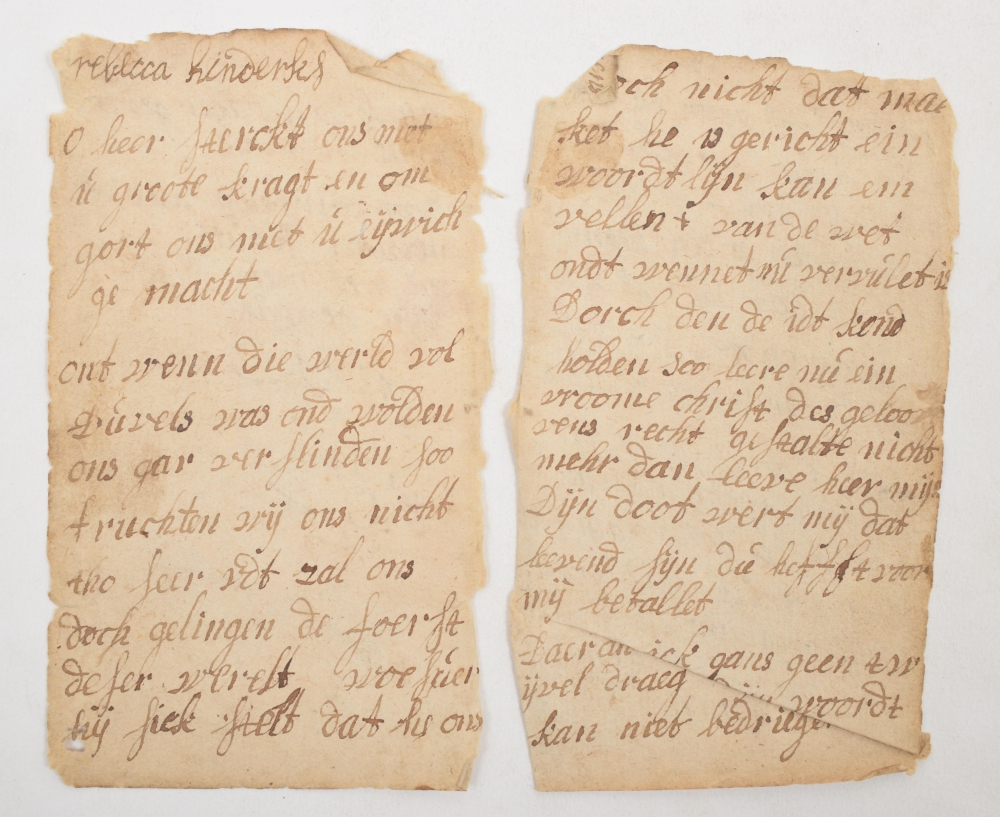 rebecca hinderks
O heer sterckt ons met
ú groote kragt en om
gort ons met ú eijwich
ge macht
ont wenn die werld vol
Dúvels was ond wolden
ons gar verslinden soo
fruchten wij ons nicht
tho seer idt zal ons
doch gelingen de foerst
deser werelt woe súer
hij sick stelt dat his ons
doch nicht dat mac
ket he is gericht ein
woordtlijn kan em
vellent van de wet
ondt wennet nú vervúlet
Dorch den de idt kond
holden soo leere nú ein
vroome christ des geloo
vens recht gestalte nicht
mehr dan leeve heer mijn
Dijn doot wert mij dat
leevend sijn dú heffst voor
mij betallet
Daer an ick gans geen tw
ijvel draeg Dijn woordt
kan niet bedriege